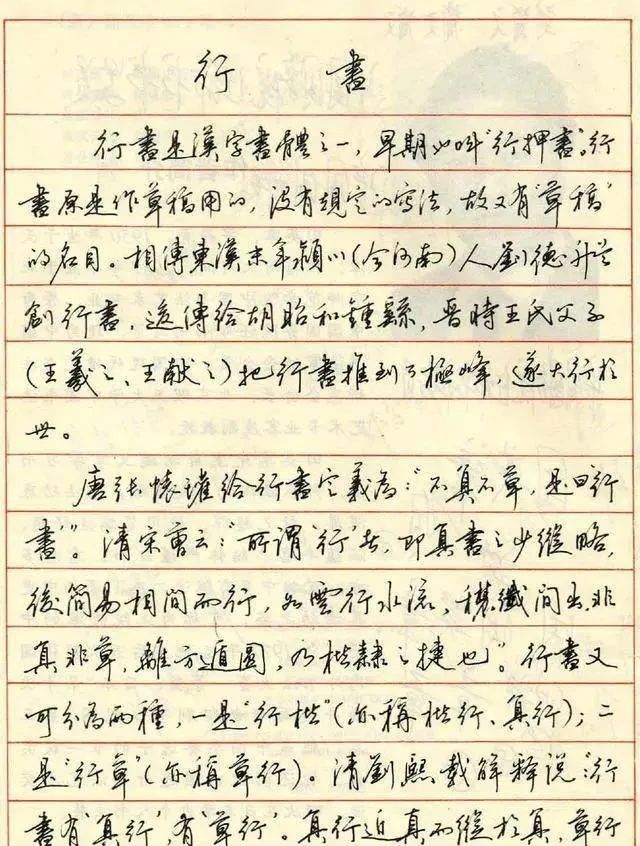 行書
行書是漢字書體之一，早期也叫"行押書"。行
書原是作草稿用的，没有規定的寫法，故又有"草稿"
的名目。相傳東漢末年潁川（今河南）人劉德升首
創行書，遂傳給胡昭和鍾繇，晋時王氏父子
（王羲之、王献之）把行書推到了極峰，遂大行於
世。
唐張懷瓘給行書定義為："不真不草，是曰'行
書'"。清宋曹云："所謂行者，即真書之少縱略，
後簡易相間而行，如雲行水流，穠纖間出，非
真非草，離方遁圓，乃楷隸之捷也"。行書又
可分為两種，一是"行楷"（亦稱楷行、真行）；二
是"行草"（亦稱草行）。清劉熙載解释説："行
書有'真行'，有'草行'。真行近真而縱於真，草行